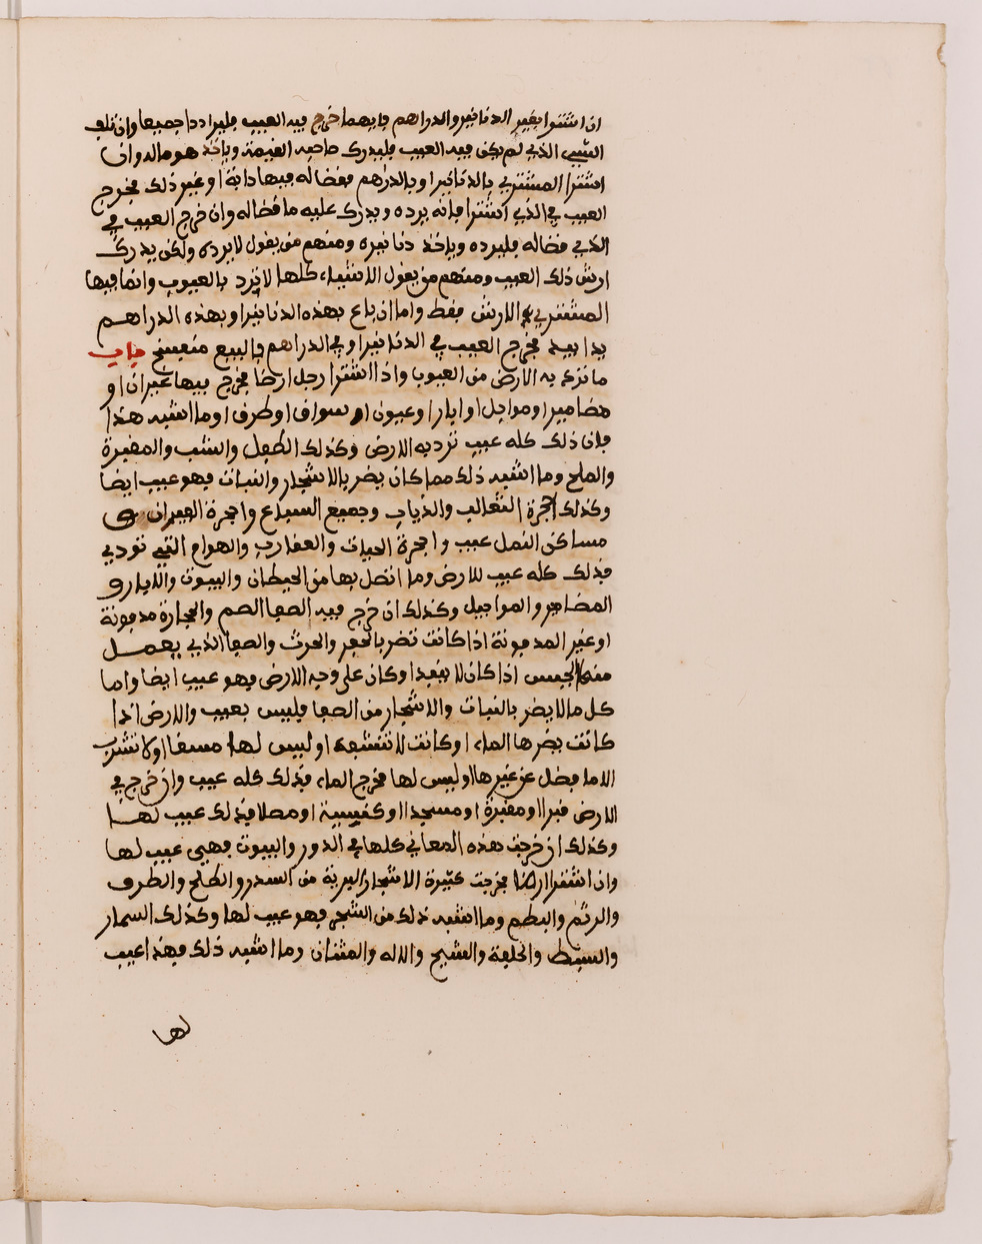 ان اشترا بغير الدنانير والدراهم فايهما خرج فيه العيب فليرادا جميعا وان تلف
الشيء الذي لم يكن فيه العيب فليدرك صاحبه القيمة وياخذ هو ماله وان
اشترا المشتري بالدنانير او بالدراهم فقضا له فيها دابة او غير ذلك فخرج
العيب في الذي اشترا فانه يرده ويدرك عليه ما قضا له وان خرج العيب في
الذي قضا له فليرده وياخذ دنانيره ومنهم من يقول لا يرده ولكن يدرك
ارش ذلك العيب ومنهم من يقول الاشياء كلها لا ترد بالعيوب وانما فيها
المشتري الارش فقط واما ان باع بهذه الدنانير او بهذه الدراهم
يدا بيد فخرج العيب في الدنانير او في الدراهم فالبيع منفسخ باب
ما ترد به الارض من العيوب واذا اشترا رجل ارضا فخرج فيها غيران او
مضامير او مواجل او ابار او عيون او سواق او طرق او ما اشبه هذا
فان ذلك كله عيب ترد به الارض وكذلك الطفل والشب والمغرة
والملح وما اشبه ذلك مما كان يضر بالاشجار والنبات فهو عيب ايضا
وكذلك اجحرة الثعالب والذياب وجميع السباع واجحرة الفيران و
مساكن النمل عيب واجحرة الحيات والعقارب والهوام التي توذي
فذلك كله عيب للارض وما اتصل بها من الحيطان والبيوت والابار و
المضامير والمواجيل وكذلك ان خرج فيه الصفا الصم والحجارة مدفونة
او غير المدفونة اذا كانت تضر بالحفر والحرث والصفا الذي يعمل
منه الجبس اذا كان لا بعيدا وكان على وجه الارض فهو عيب ايضا واما
كل ما لا يضر بالنبات والاشجار من الصفا فليس بعيب والارض اذا
كانت يضرها الماء او كانت لا تنشفه او ليس لها مسقا او لا تشرب
الا ما فضل عن غيرها او ليس لها مخرج الماء فذلك كله عيب وان خرج في
الارض قبرا او مقبرة او مسجدا او كنيسة او مصلا فذلك عيب لها
وكذلك ان خرجت هذه المعاني كلها في الدور والبيوت فهي عيب لها
وان اشترا ارضا فخرجت كثيرة الاشجار البرية من السدر والطلح والطرف
والرتم والبطم وما اشبه ذلك من الشجر فهو عيب لها وكذلك السمار
والسبط والحلفة والشيح والاله والمثنان وما اشبه ذلك فهذا عيب
لها